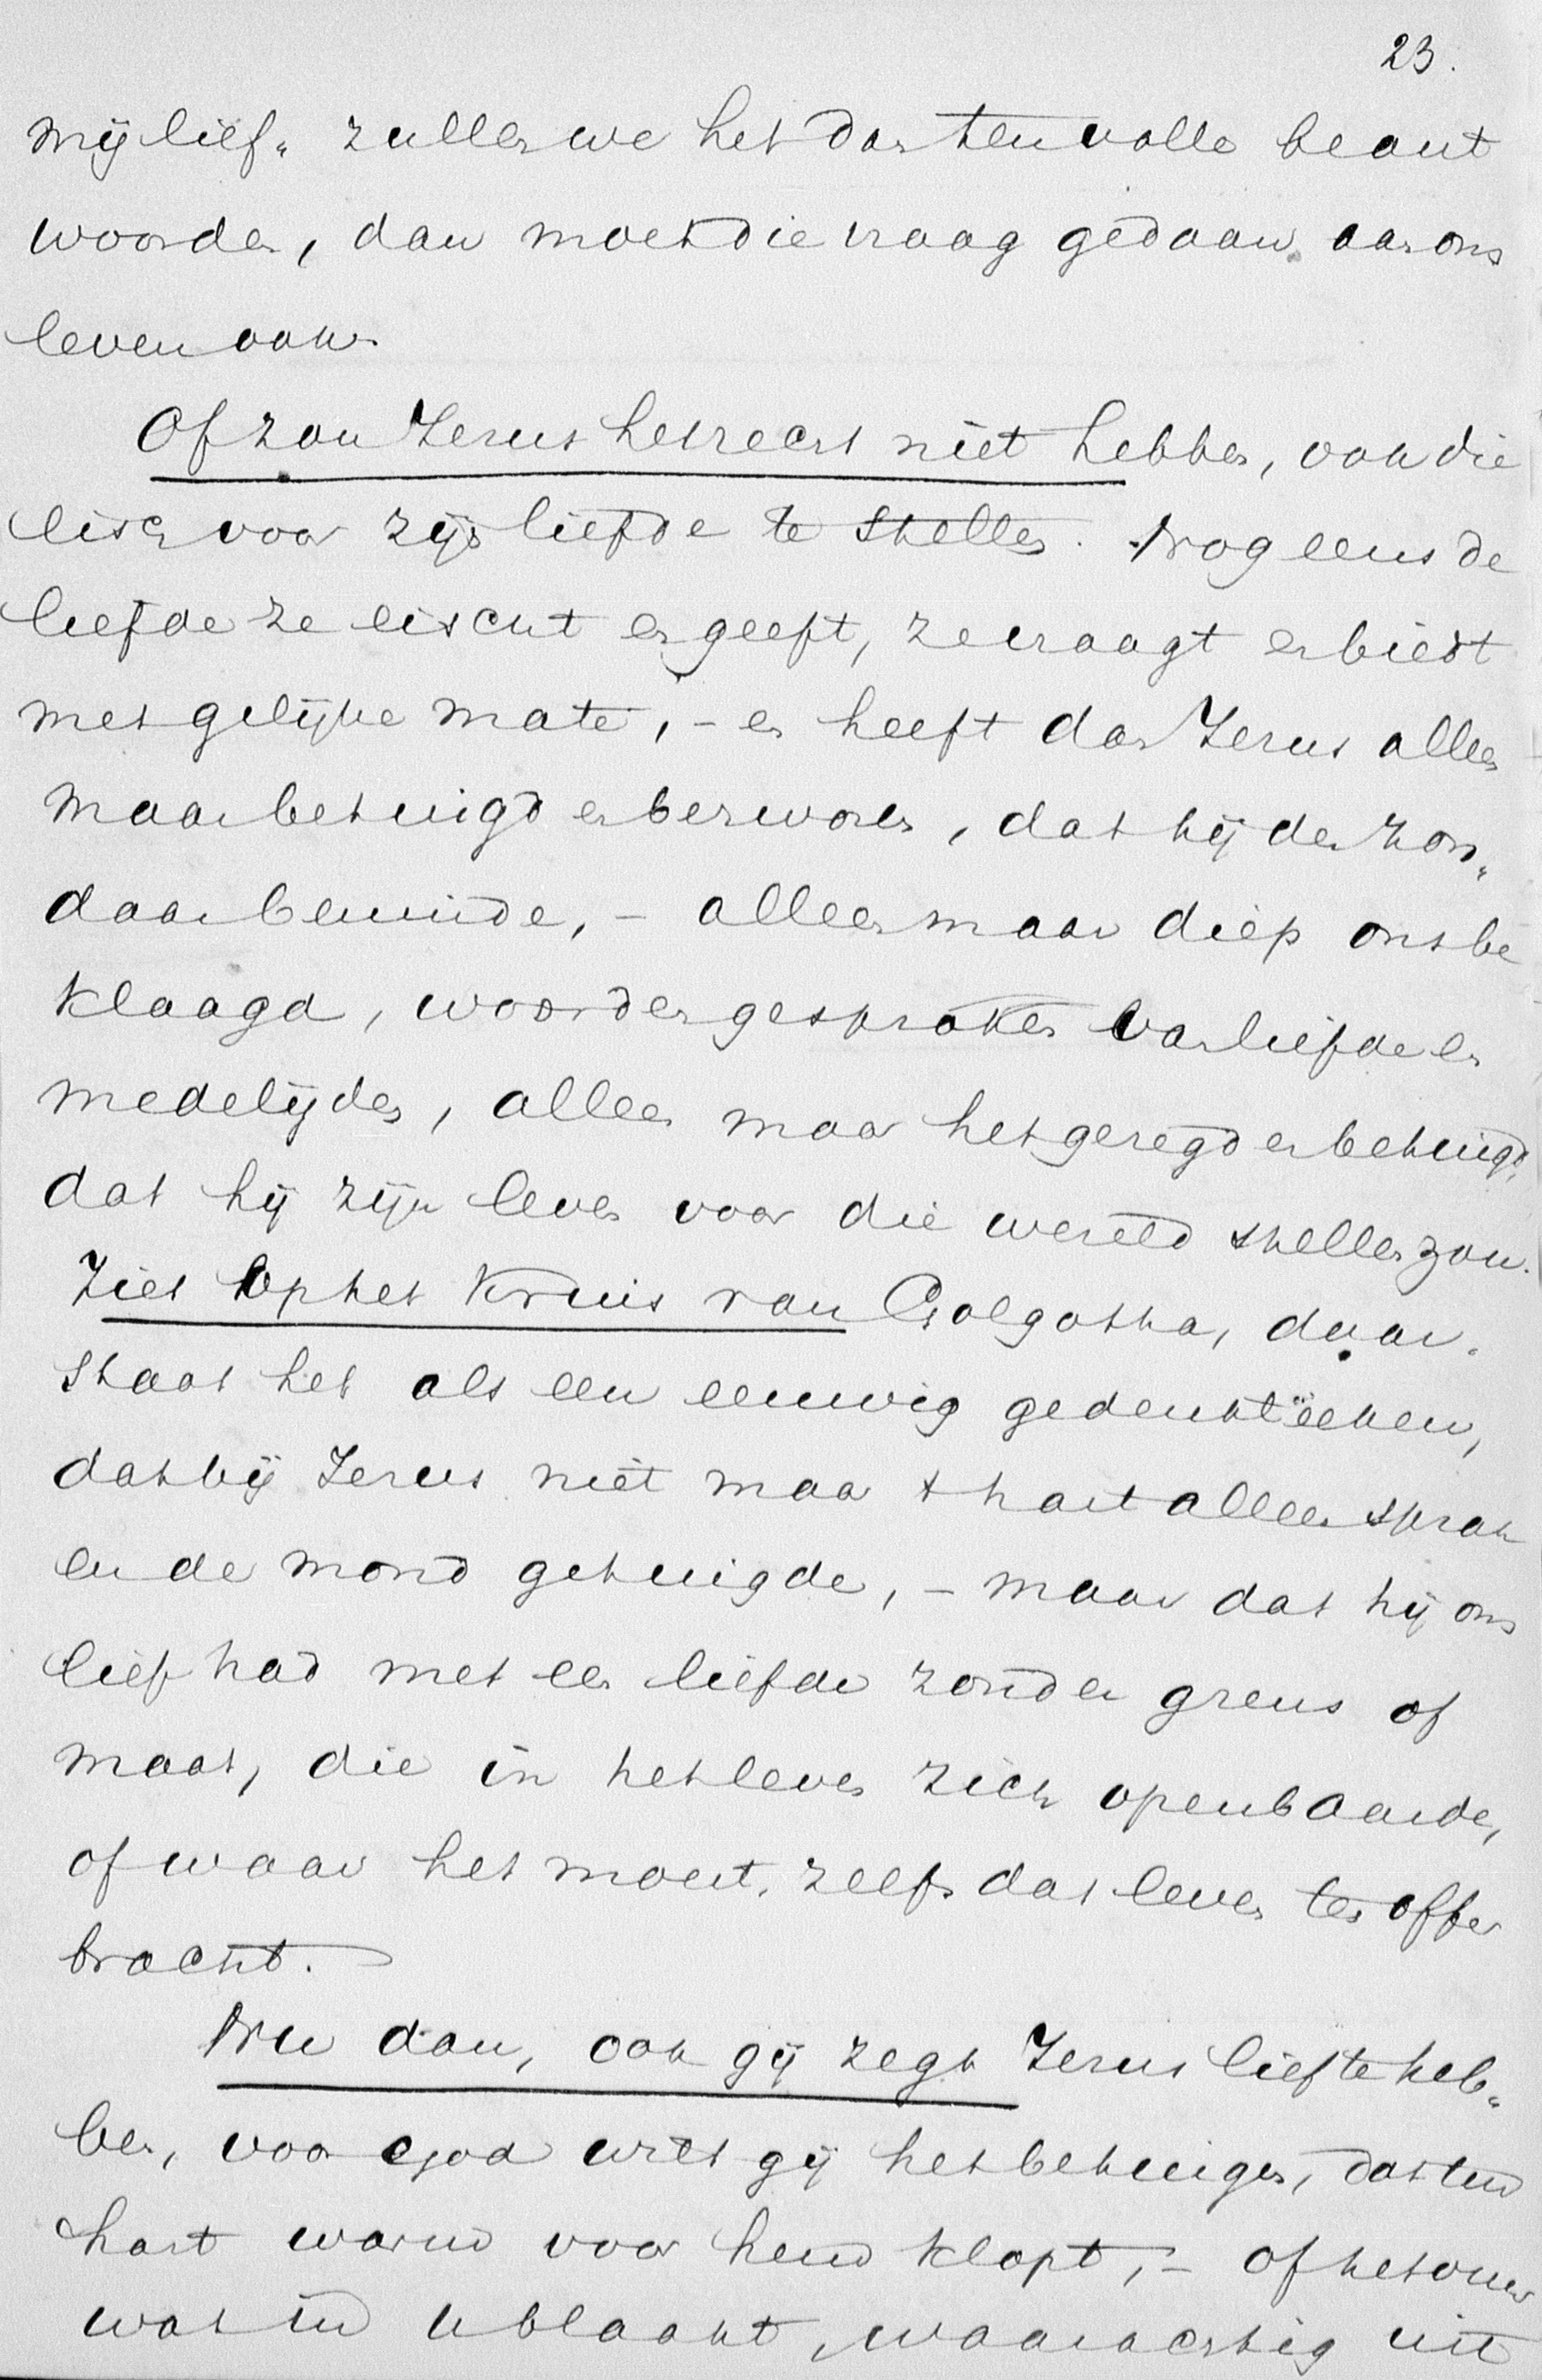 23.
mij lief„ zullen we het dan ten volle beant
woorden, dan moet die vraag gedaan aan ons
leven ook.
Of zou Jezus het recht niet hebben, ook die
eisch voor zijn liefde te stellen. Nog eens de
liefde ze eischt en geeft, ze vraagt en biedt
met gelijke mate, – en heeft dan Jezus alleen
maar betuigd en bezworen, dat hij den zon„
daar beminde, – alleen maar diep ons be
klaagd, woorden gesproken van liefde en
medelijden, alleen maar het gezegd en betuigd,
dat hij zijn leven voor die wereld stellen zou.
Ziet op het kruis van Golgotha, daar
staat het als een eeuwig gedenkteeken,
dat bij Jezus niet maar t hart alleen sprak
en de mond getuigde, – maar dat hij ons
lief had met een liefde zonder grens of
maat, die in het leven zich openbaarde,
of waar het moest, zelfs dat leven ten offer
bracht.
Nu dan, ook gij zegt Jezus lief te heb„
ben, voor God wilt gij het betuigen, dat uw
hart warm voor hem klopt, – of het vuur
wat in u blaakt, waarachtig uit